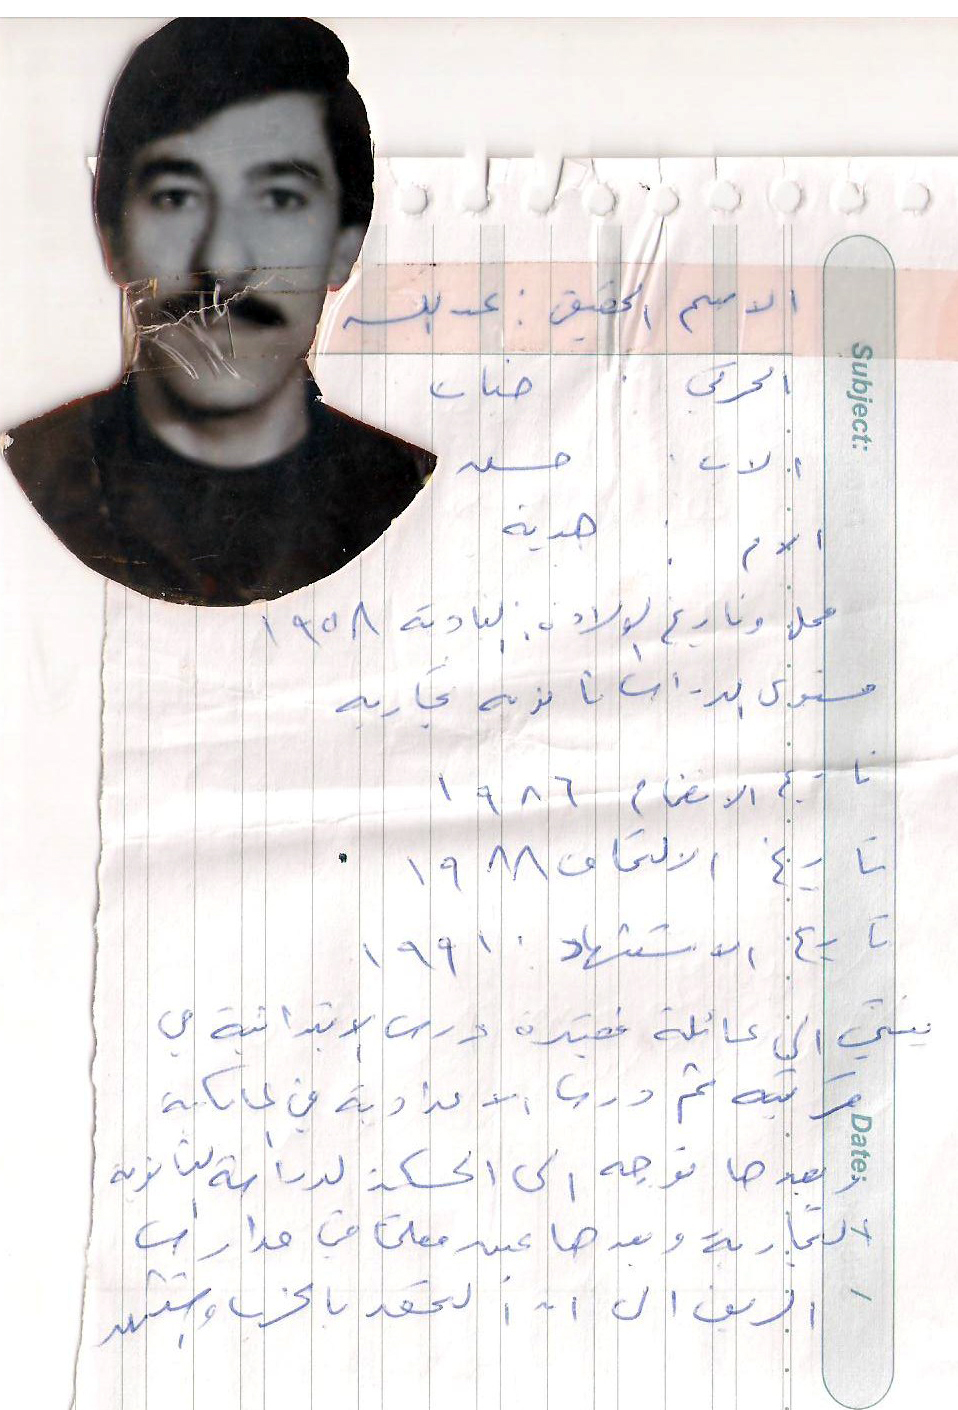 الاسم الحقيقي : عبدالله
الحركي : خبات
الاب : حسن
الام : هدية
محل وتاريخ الولادة : ١٩٥٨
مستوى الدراسات ثانوية تجارية
تاريخ الانضمام ١٩٨٦
تاريخ الالتحاق ١٩٨٨
تاريخ الاستشهاد : ١٩٩١
ينتمي الى عائلة فقيرة درس الابتدائية في
قريته ثم درس الاعدادية في
وبعدها توجه الى الحسكة لدراسة الثانوية
التجارية وبعدها عين معلما في مدارس
الريف الى ان التحق بالحزب واستشهد
Subject:
Date: / /